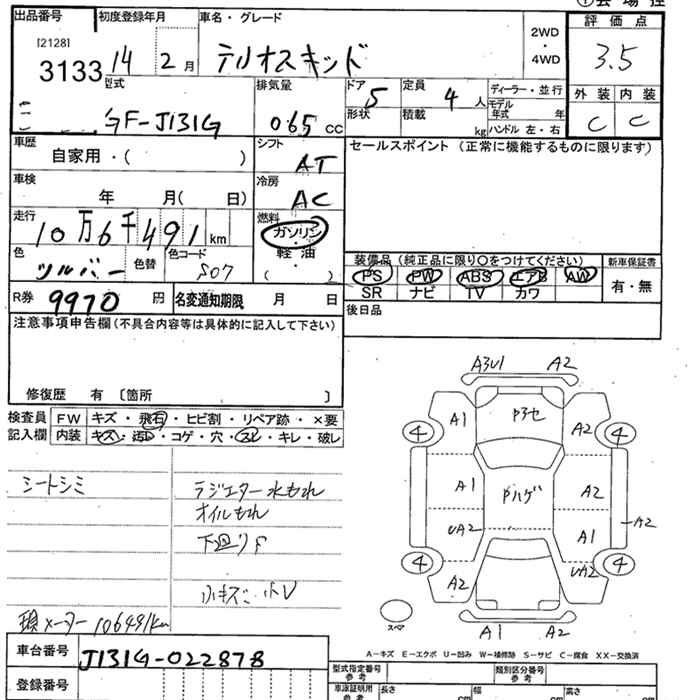 出品番号 初度登録年月 車名・グレード
[2128]
3133 14 2月 テリオスキッド 2WD・4WD
評価点
3.5
型式 排気量 ドア 定員 ディーラー・並行
GF-J131G 065 CC 5 4人
形状 積載 kg モデル年式 年
ハンドル 左・右
外装 内装
C C
車歴 シフト セールスポイント (正常に機能するものに限ります)
自家用・( ) AT
車検 冷房
年 月( 日) AC
走行 燃料
10万6千491km ガソリン
軽油
( )
色 色替 色コード
シルバー S07
装備品 (純正品に限り○をつけてください) 新車保証書
PS PW ABS エアB AW 有・無
SR ナビ TV カワ
R券 9970円 名変通知期限 月 日
後日品
注意事項申告欄(不具合内容等は具体的に記入して下さい)
修復歴 有 〔箇所 〕
検査員 FW キズ・飛石・ヒビ割・リペア跡・×要
記入欄 内装 キズ・汚レ・コゲ・穴・スレ・キレ・破レ
シートシミ ラジエター水もれ
オイルもれ
下廻りF
小キズ・小U
現メーター 106491km
A3U1 A2
A1 P3セ A2
4 4
A1 Pハゲ A2
UA2 A1 A2
4 4
A2 UA2
スペア
A1 A2
A-キズ E-エクボ U-凹み W-補修跡 S-サビ C-腐食 XX-交換済
車台番号 J131G-022878
登録番号
型式指定番号 参考 類別区分番号 参考
車庫証明用 参考 長さ cm 幅 cm 高さ cm